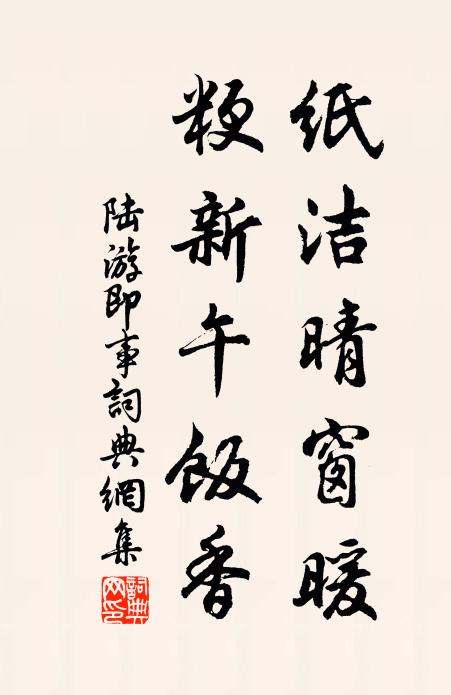 纸洁晴窗暖
粳新午饭香
陆游即事詞典網集
詞典网印